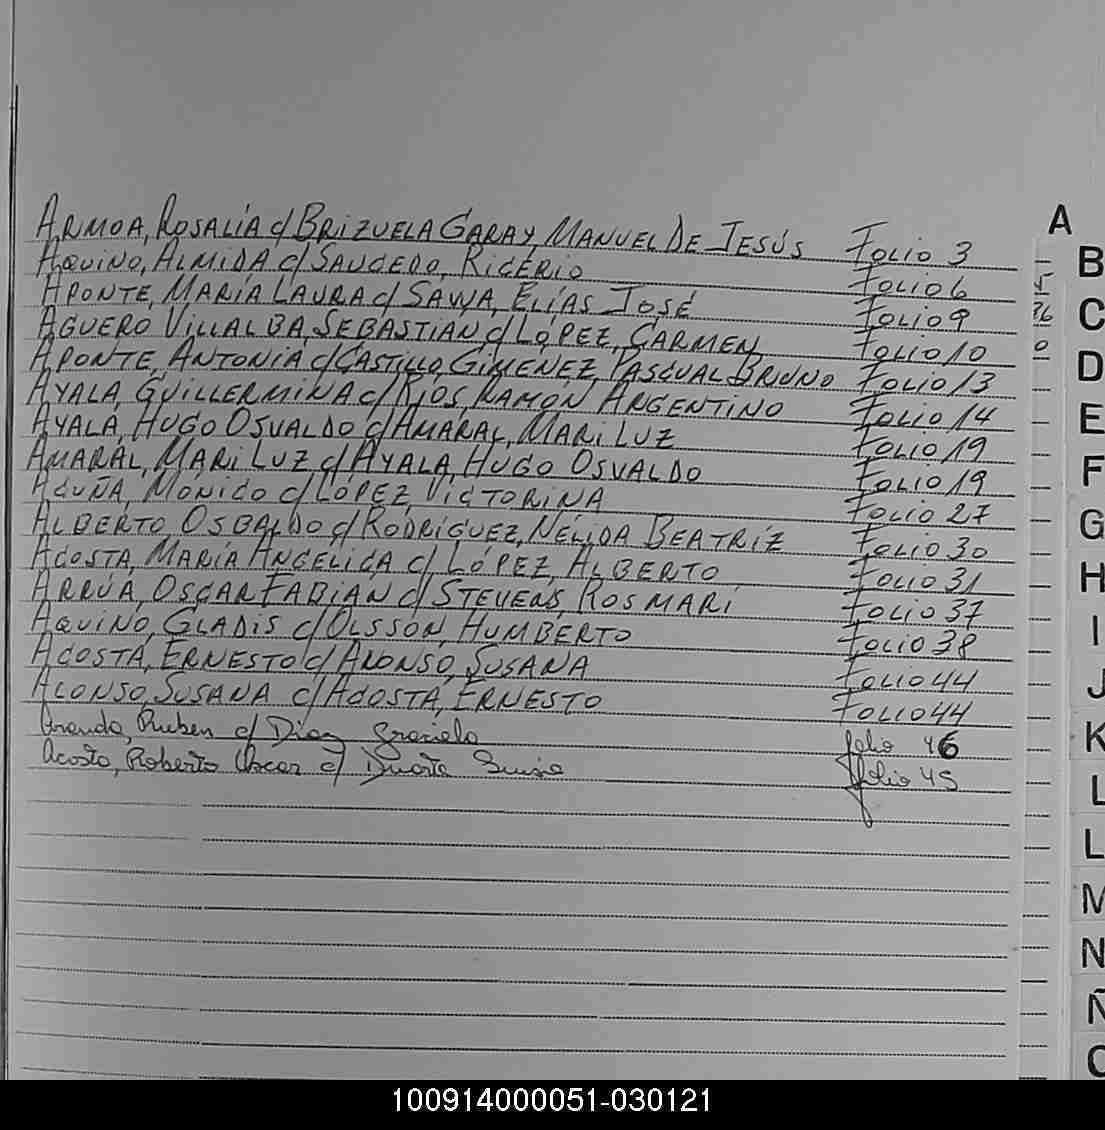 ARMOA, ROSALÍA c/ BRIZUELA GARAY, MANUEL DE JESÚS FOLIO 3
AQUINO, ALMIDA c/ SAUCEDO, RIGERIO FOLIO 6
APONTE, MARÍA LAURA c/ SAWA, ELÍAS JOSÉ FOLIO 9
AGUERO VILLALBA, SEBASTIAN c/ LÓPEZ, CARMEN FOLIO 10
APONTE, ANTONIA c/ CASTILLO GIMENEZ, PASCUAL BRUNO FOLIO 13
AYALA, GUILLERMINA c/ RIOS, RAMÓN ARGENTINO FOLIO 14
AYALA, HUGO OSVALDO c/ AMARAL, MARI LUZ FOLIO 19
AMARAL, MARI LUZ c/ AYALA, HUGO OSVALDO FOLIO 19
ACUÑA, MONICO c/ LÓPEZ, VICTORINA FOLIO 27
ALBERTO, OSBALDO c/ RODRÍGUEZ, NÉLIDA BEATRÍZ FOLIO 30
ACOSTA, MARÍA ANGÉLICA c/ LÓPEZ, ALBERTO FOLIO 31
ARRÚA, OSCAR FABIAN c/ STEVENS, ROSMARÍ FOLIO 37
AQUINO, GLADIS c/ OLSSON, HUMBERTO FOLIO 38
ACOSTA, ERNESTO c/ ALONSO, SUSANA FOLIO 44
ALONSO, SUSANA c/ ACOSTA, ERNESTO FOLIO 44
Aranda, Ruben c/ Diaz Graciela folio 46
Acosta, Roberto Oscar c/ Duarte folio 45
A
B
C
D
E
F
G
H
I
J
K
L
L
M
N
Ñ
O
100914000051-030121